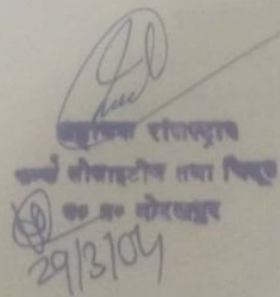 सहायक रजिस्ट्रार
फर्म्स सोसाइटीज तथा चिट्स
उ० प्र० गोरखपुर
29/3/04